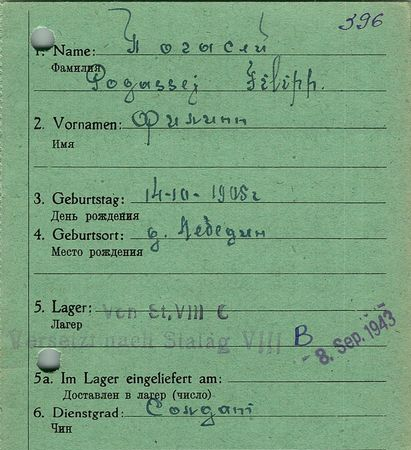 396
1. Name: Погасей
Фамилия
Pogassej Filipp.
2. Vornamen: Филипп
Имя
3. Geburtstag: 14-10-1908г
День рождения
4. Geburtsort: д. Лебедин
Место рождения
5. Lager: Von St. VIII C
Лагер
Versetzt nach Stalag VIII B
- 8. Sep. 1943
5a. Im Lager eingeliefert am:
Доставлен в лагер (число)
6. Dienstgrad: Солдат
Чин